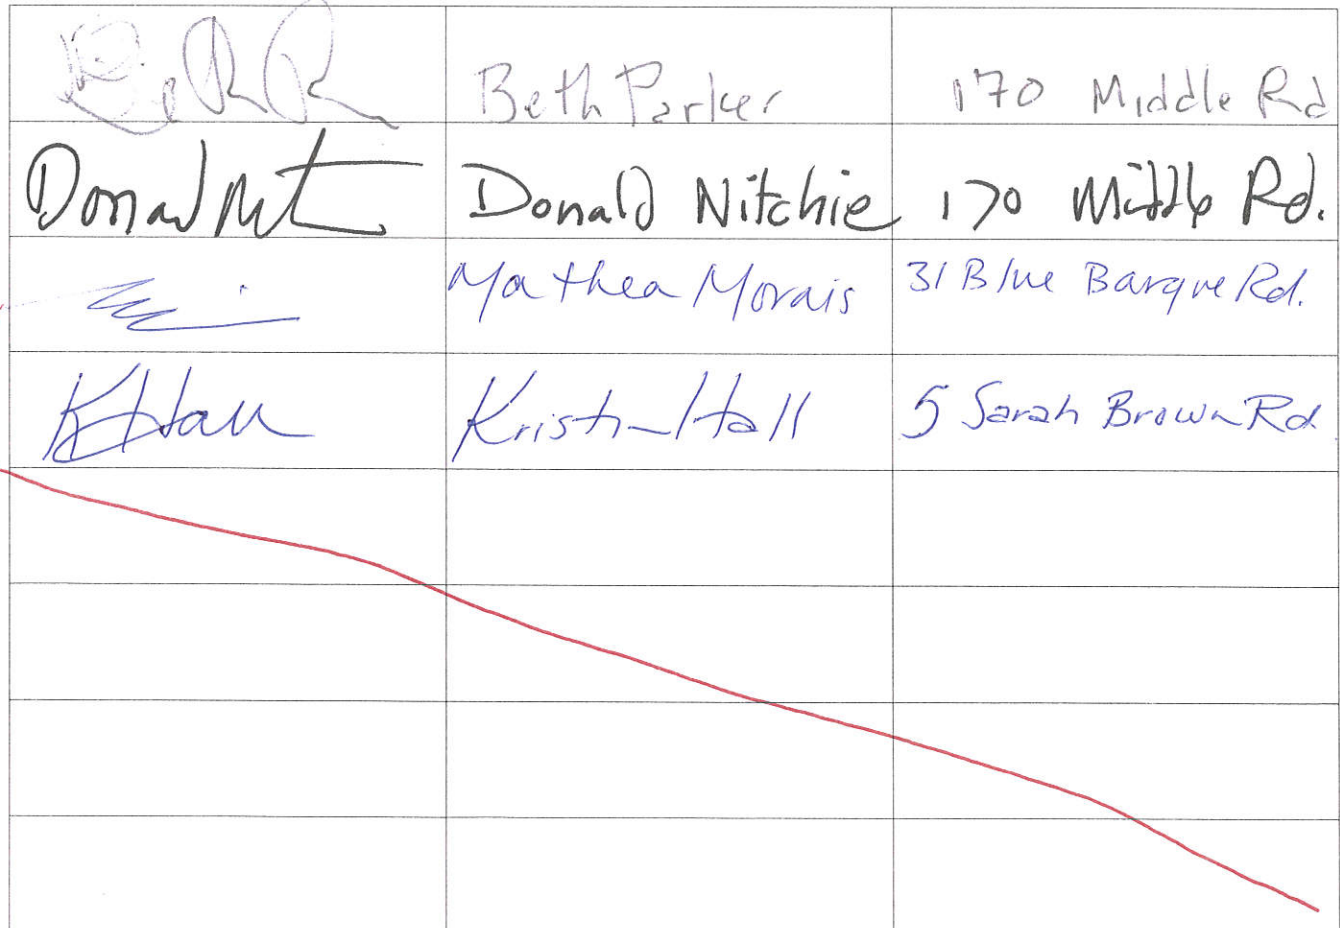 Beth Parker 170 Middle Rd
Donald Nitchie 170 Middle Rd.
Mathea Morais 31 Blue Barque Rd.
KHall Kristin Hall 5 Sarah Brown Rd.